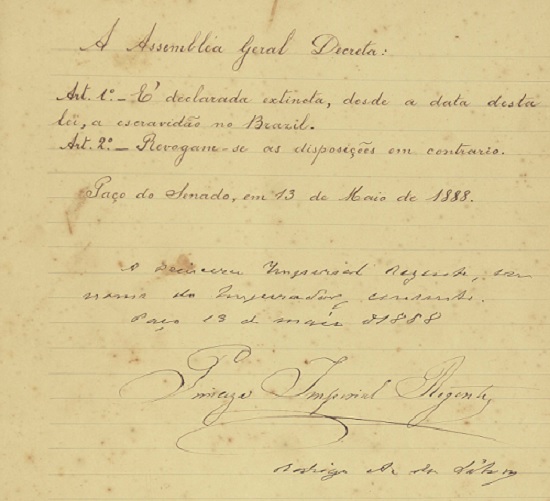 A Assemblea Geral Decreta:
Art. 1º.- E' declarada extincta, desde a data desta
lei, a escravidão no Brazil.
Art. 2º.- Revogam-se as disposições em contrario.
Paço do Senado, em 13 de Maio de 1888.
A Princeza Imperial Regente, em
nome do Imperador, consente.
Paço 13 de maio d 1888
Princeza Imperial Regente,
Rodrigo A. da Silva